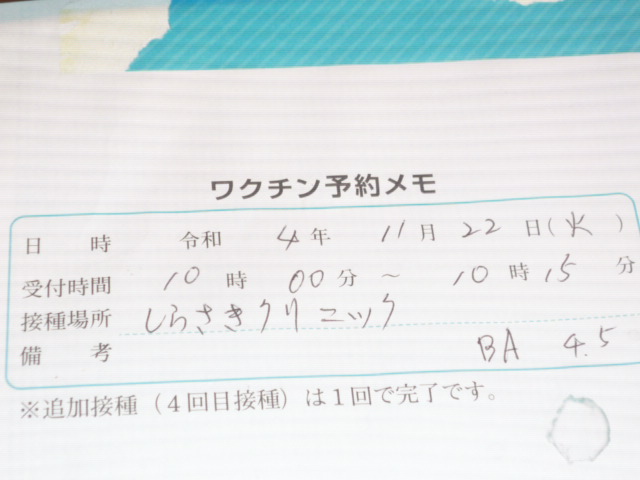 ワクチン予約メモ
日 時 令和 4年 11月 22日(火)
受付時間 10時 00分 ~ 10時15分
接種場所 しらさきクリニック
備 考 BA 4.5
※追加接種(4回目接種)は1回で完了です。